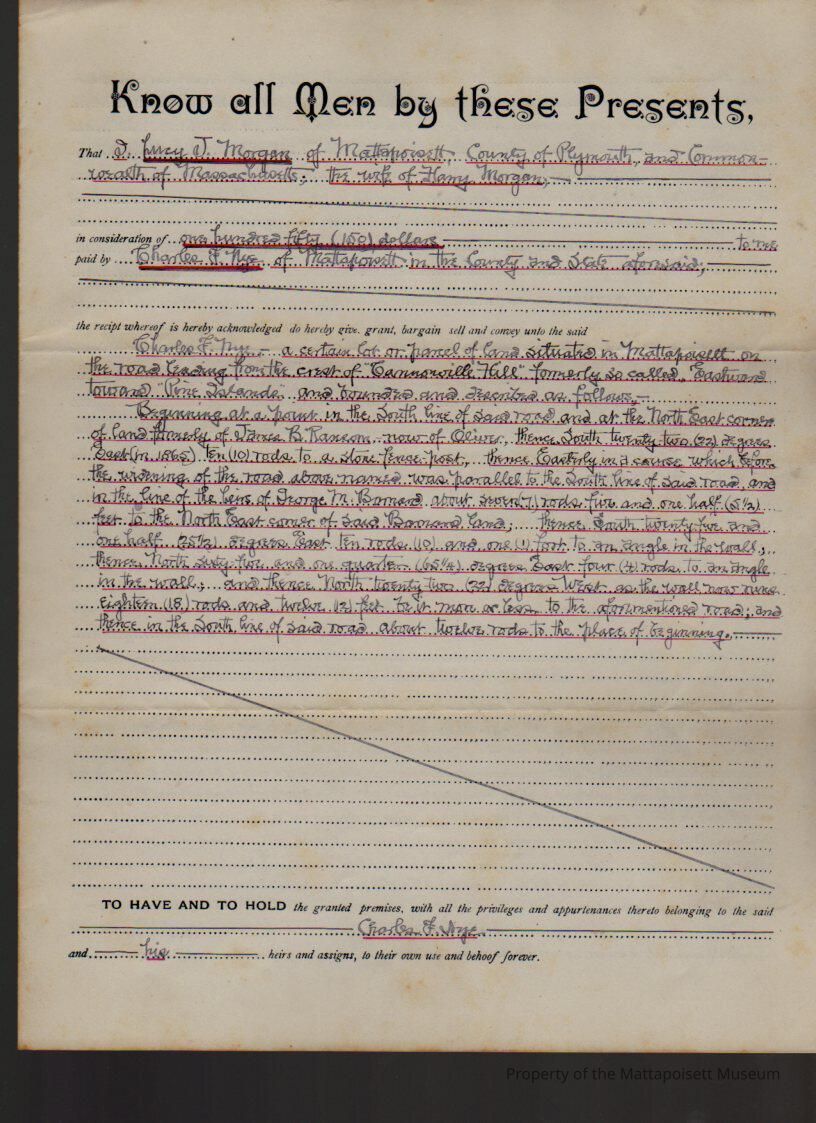 Know all Men by these Presents,
That I, Lucy J. Morgan of Mattapoisett, County of Plymouth, and Common-
wealth of Massachusetts, the wife of Harry Morgan,
in consideration of one hundred fifty (150) dollars to me
paid by Charles F. Nye of Mattapoisett in the County and State aforesaid,
the recipt whereof is hereby acknowledged do hereby give. grant, bargain sell and convey unto the said
Charles F. Nye, - a certain lot or parcel of land situated in Mattapoisett on
the road leading from the crest of "Cannonville Hill" formerly so called, Eastward
toward "Pine Islands" and bounded and described as follows,-
Beginning at a point in the South line of said road and at the North East corner
of land formerly of James B. Ransom now of Oliver, thence South twenty-two (22) degrees
East (in 1865) ten (10) rods to a stone fence post, thence Easterly in a course which before
the widening of the road above named was parallel to the South line of said road, and
in the line of the heirs of George M. Barnard about seven (7) rods five and one half (5½)
feet to the North East corner of said Barnard land; thence South twenty five and
one half (25½) degrees East ten rods (10) and one (1) foot to an angle in the wall;
thence North sixty five and one quarter (65¼) degrees East four (4) rods to an angle
in the wall; and thence North twenty two (22) degrees West as the wall now runs
eighteen (18) rods and twelve (12) feet be it more or less to the aforementioned road; and
thence in the South line of said road about twelve rods to the place of beginning.
TO HAVE AND TO HOLD the granted premises, with all the privileges and appurtenances thereto belonging to the said
Charles F. Nye
and his heirs and assigns, to their own use and behoof forever.
Property of the Mattapoisett Museum